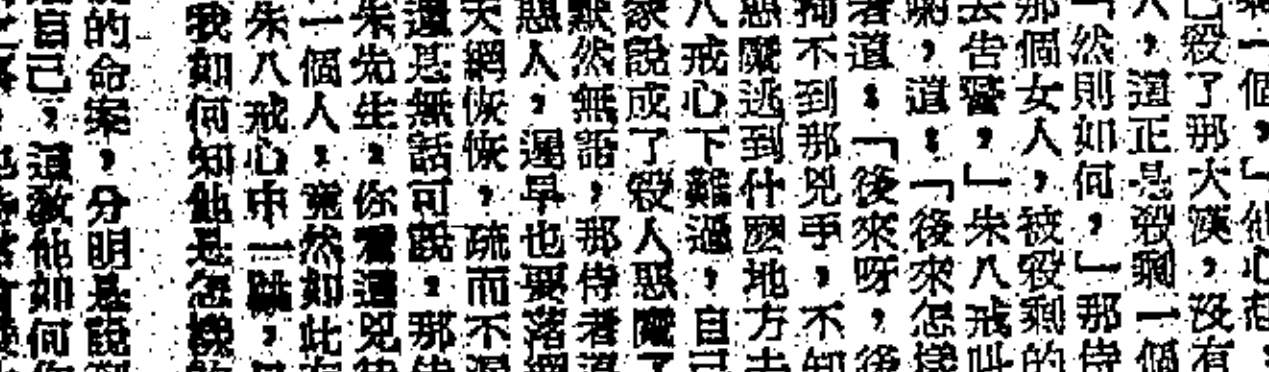 一個，」他心想，
已殺了那大漢，沒有
人，還正是殺剩一個
「然則如何，」那侍
那個女人，被殺剩的
去告警，」朱八戒叫
喇，道：「後來怎樣
者道：「後來呀，後
拘不到那兇手，不知
惡魔逃到什麼地方去
八戒心下難過，自己
家說成了殺人惡魔了
默然無語，那侍者道
惡人，遲早也要落網
天網恢恢，疏而不漏
還是無話可說。那侍
朱先生。你看這兇徒
一個人，竟然如此
朱八戒心中一跳，
我如何知他是怎樣
的命案，分明是說到
自己，這教他如何